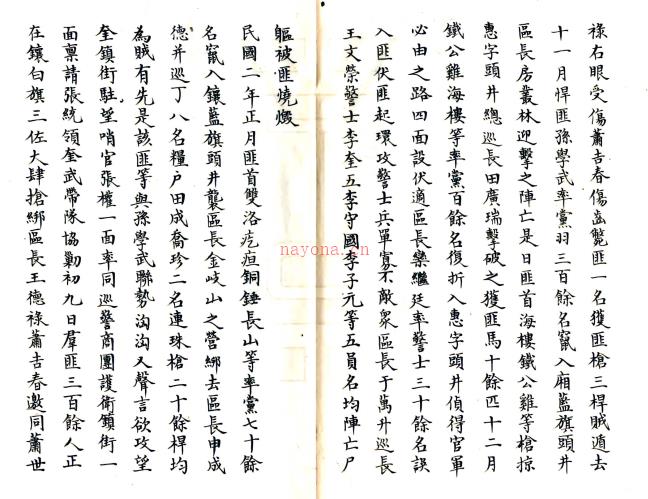 祿右眼受傷蕭吉春傷齒斃匪一名獲匪槍三桿賊遁去
十一月悍匪孫學武率黨羽三百餘名竄入廂藍旗頭井
區長房叢林迎擊之陣亡是日匪首海樓鐵公雞等槍掠
惠字頭井總巡長田廣瑞擊破之獲匪馬十餘匹十二月
鐵公雞海樓等率黨百餘名復折入惠字頭井偵得官軍
必由之路四面設伏適區長欒繼廷率警士三十餘名誤
入匪伏匪起環攻警士兵單寡不敵衆區長于萬升巡長
王文榮警士李奎五李守國李子元等五員名均陣亡尸
軀被匪燒燬
民國二年正月匪首雙洛疙疸銅錘長山等率黨七十餘
名竄入鑲藍旗頭井襲區長金岐山之營綁去區長申成
德并巡丁八名糧戶田成喬珍二名連珠槍二十餘桿均
為賊有先是該匪等與孫學武聯勢洶洶又聲言欲攻望
奎鎮街駐望哨官張權一面率同巡警商團護衛鎮街一
面稟請張統領奎武帶隊協勦初九日羣匪三百餘人正
在鑲白旗三佐大肆搶綁區長王德祿蕭吉春邀同蕭世
nayona.cn